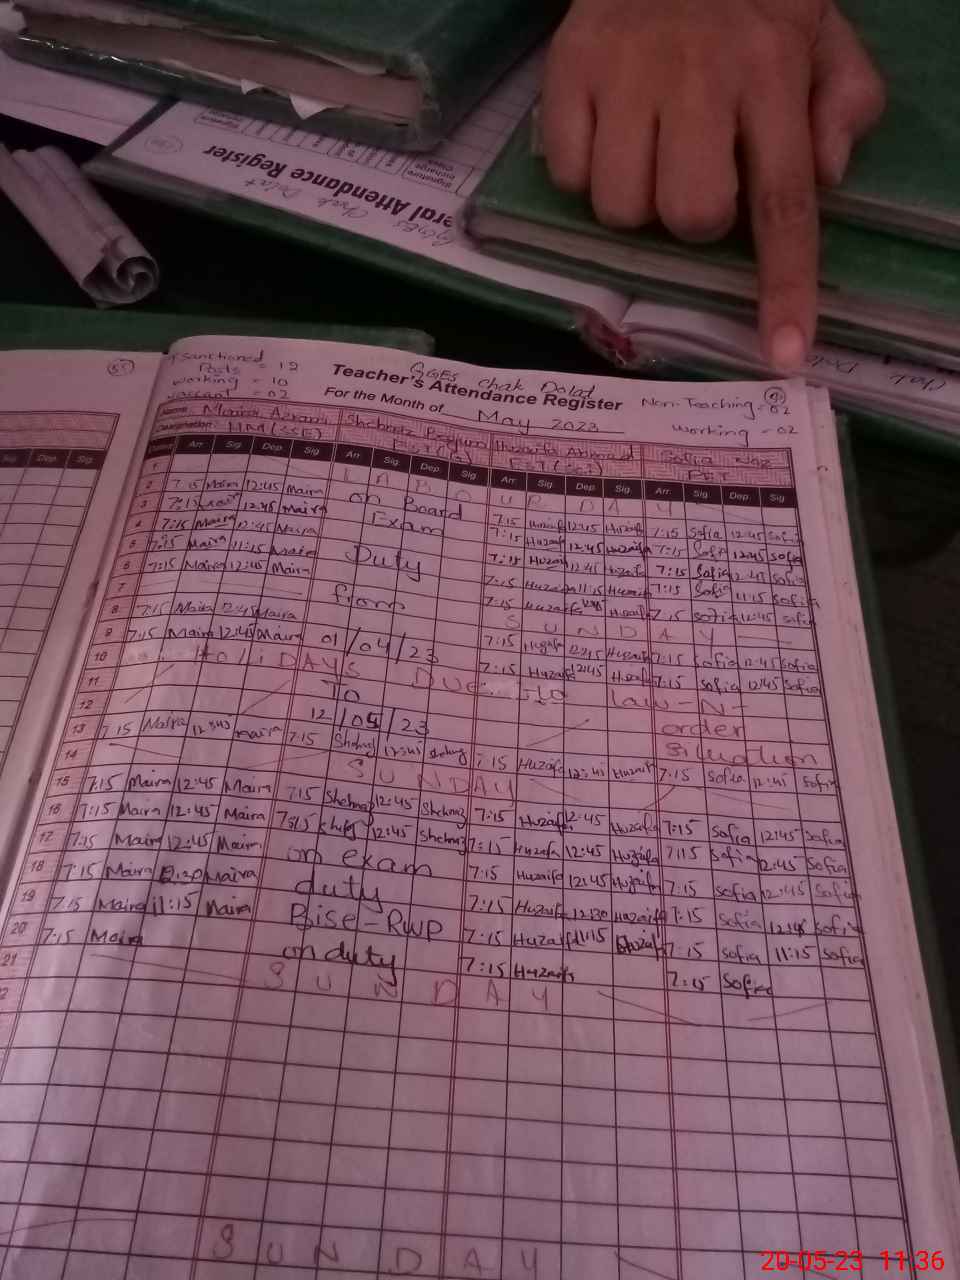 General Attendance Register
GGES
Chak Dolat
Signature
Incharge
55
Sanctioned
Posts = 12
working = 10
vaccant = 02
GGES Chak Dolad
Teacher's Attendance Register
For the Month of May 2023
Non-Teaching = 02
working = 02
Name
Designation
Dates Arr. Sig. Dep. Sig. Arr. Sig. Dep. Sig. Arr. Sig. Dep. Sig. Arr. Sig. Dep. Sig.
1 LABOUR DAY
2 7:15 Maira 12:45 Maira on Board 7:15 Huzaifa 12:45 Huzaifa 7:15 Sofia 12:45 Sofia
3 7:15 12:45 Maira Exam 7:15 Huzaifa 12:45 Huzaifa 7:15 Sofia 12:45 Sofia
4 7:15 Maira 12:45 Maira 7:15 Huzaifa 12:45 Huzaifa 7:15 Sofia 12:45 Sofia
5 7:15 Maira 11:15 Maira Duty 7:15 Huzaifa 11:15 Huzaifa 7:15 Sofia 11:15 Sofia
6 7:15 Maira 12:45 Maira 7:15 Huzaifa 12:45 Huzaifa 7:15 Sofia 12:45 Sofia
7 from SUNDAY
8 7:15 Maira 12:45 Maira 7:15 Huzaifa 12:45 Huzaifa 7:15 Sofia 12:45 Sofia
9 7:15 Maira 12:45 Maira 01/04/23 7:15 Huzaifa 12:45 Huzaifa 7:15 Sofia 12:45 Sofia
10 HOLIDAYS DUE To law-N-
11 To order
12 12/05/23 Situation
13 7:15 Maira 12:45 Maira 7:15 Shehnaz 12:45 Shehnaz 7:15 Huzaifa 12:45 Huzaifa 7:15 Sofia 12:45 Sofia
14 SUNDAY
15 7:15 Maira 12:45 Maira 7:15 Shehnaz 12:45 Shehnaz 7:15 Huzaifa 12:45 Huzaifa 7:15 Sofia 12:45 Sofia
16 7:15 Maira 12:45 Maira 7:15 12:45 Shehnaz 7:15 Huzaifa 12:45 Huzaifa 7:15 Sofia 12:45 Sofia
17 7:15 Maira 12:45 Maira on exam 7:15 Huzaifa 12:45 Huzaifa 7:15 Sofia 12:45 Sofia
18 7:15 Maira Maira duty 7:15 Huzaifa 12:30 Huzaifa 7:15 Sofia 12:45 Sofia
19 7:15 Maira 11:15 Maira Bise-RWP 7:15 Huzaifa 11:15 Huzaifa 7:15 Sofia 11:15 Sofia
20 7:15 Maira on duty 7:15 Huzaifa 7:15 Sofia
21 SUNDAY
SUNDAY
20-05-23 11:36